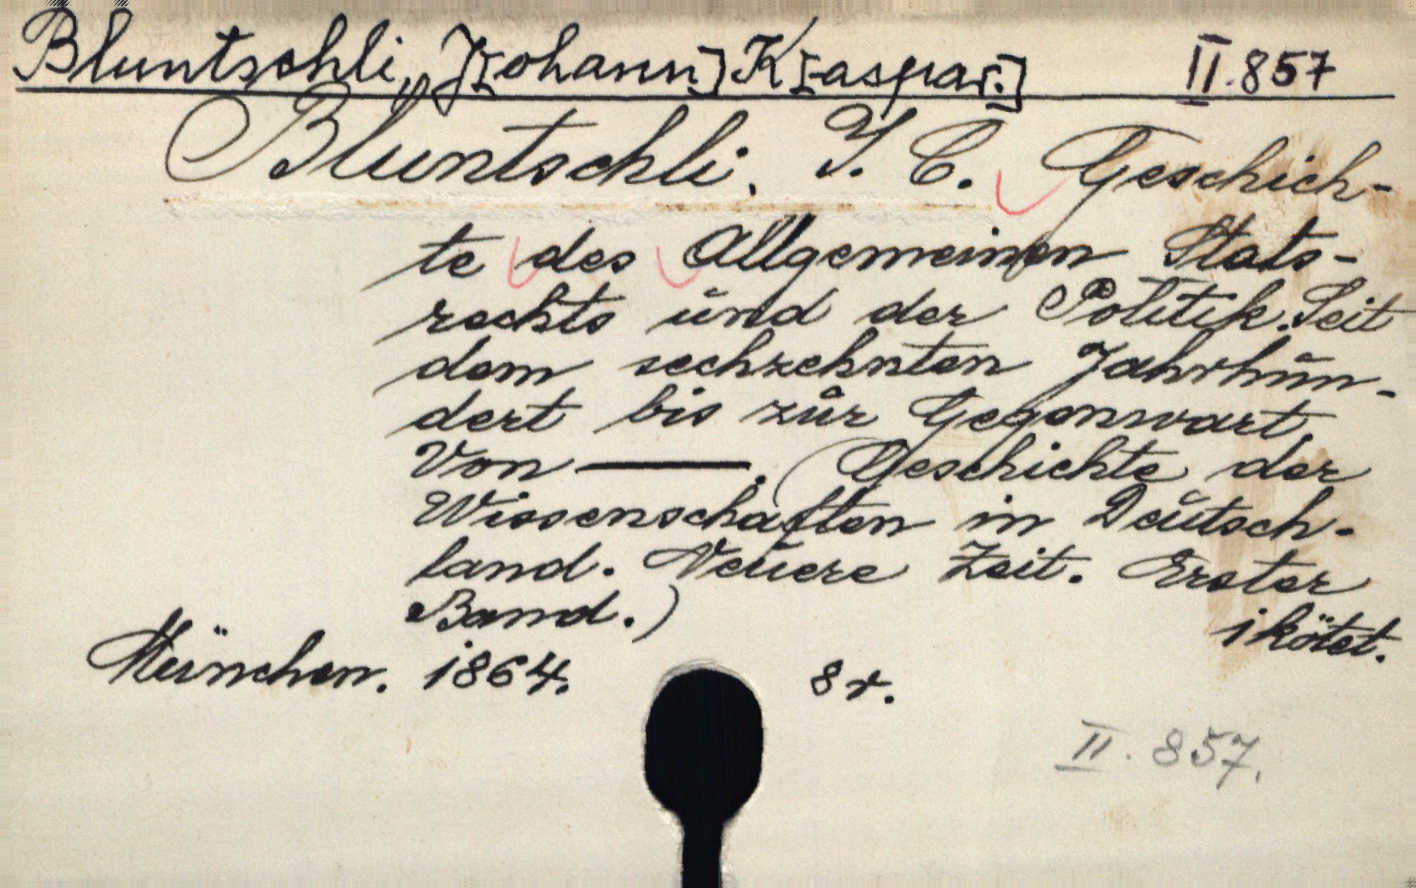 Bluntschli, J[ohann] K[aspar.] II.857
Bluntschli. J. C. Geschich-
te des Allgemeinen Stats-
rechts und der Politik. Seit
dem sechzehnten Jahrhun-
dert bis zur Gegenwart.
Von ———. (Geschichte der
Wissenschaften in Deutsch-
land. Neuere Zeit. Erster
Band.)
1 kötet.
München. 1864. 8 r.
II. 857.